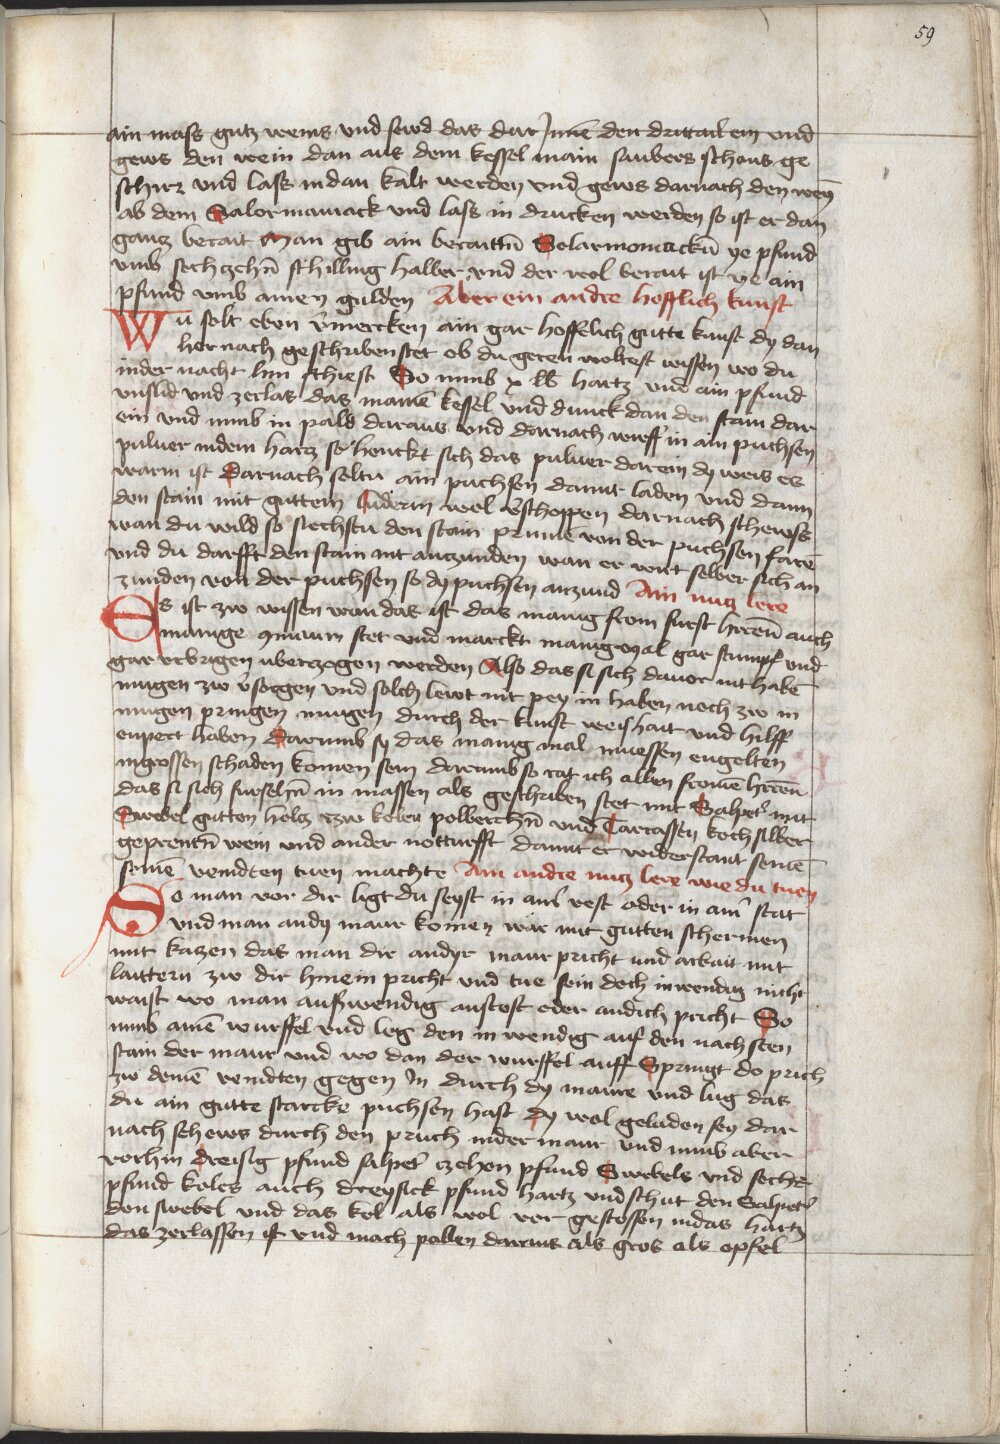 59
ain mass gutz weins vnd sewd das dar Inne den drittail ein vnd
gews den wein dan aus dem kessel in ain saubers schons ge
schirr vnd lass in dan kalt werden vnd gews darnach den wein
ab dem Salormaniack vnd lass in drucken werden so ist er dan
gancz berait Man gib ain beraittn Solarmoniackn ye pfund
vmb sechczehn schilling haller vnd der wol berait ist ye ain
pfund vmb ainen gulden Aber ein andre hofflich kunst
Wu solt eben vmercken ain gar hoffelich gutte kunst dy dan
hernach geschriben stet ob du geren woltest wissen wo du
in der nacht hin schiest So nimb x lb hartz vnd ain pfund
vnslid vnd zerlas das in ainem kessel vnd dunck dan den stain dar
ein vnd nimb in pald daraus vnd darnach wirff in ain puchsen
puluer in dem hartz so henckt sich das puluer darein dy weis es
warm ist Darnach soltu ain puchsen damit laden vnd dann
den stain mit guttem luderin wol verschoppen darnach schewss
wan du wild so siechstu den stain prinne von der puchsen fare
vnd du darfft den stain nit anczunden wan er wirt selber sich an
zunden von der puchsen so dy puchsen anzund Ain nucz lere
Es ist zw wissen wan das ist das manig from furst herren auch
mainige stet vnd marckt manig mal gar stumpf vnd
gar vbrigen vberczogen werden Also das si sich dauor nit habe
mugen zw vsorgen vnd solch lewt nit pey in haben noch zw in
mugen pringen mugen durch der kunst weishait vnd hilff
enpert haben Darumb sy das manig mal muessen engelten
in grossen schaden komen sein darumb so rat ich allen frome herren
das si sich furselhn in massen als geschriben stet mit Salpeter mit
Swebel gutten holcz czw kolen polberczn vnd Tartassen kochsilber
geprentn wein vnd ander notturfft damit er widerstant seine
seine veindten tuen machte Ain andre nucz lere wie du tuen
So man vor dir ligt du seyst in ainer vest oder in ainer stat
vnd man an dy maur komen wär mit gutten schermen
mit kaczen das man dir an dyr maur pricht vnd arbait mit
laittern zw dir hinein pricht vnd tue sein doch inwendig nicht
waist wo man auswendig anstost oder an dich pricht So
nimb ainen wurffel vnd leg den inwendig auf den nachsten
stain der maur vnd wo dan der wurffel auff Springt do prich
zw deine veindten gegen In durch dy maure vnd lug das
du ain gutte starcke puchsen hast dy wol geladen sey dar
nach schews durch den pruch in der maur vnd nimb aber
vorhin dreisig pfund salpeter czehen pfund Swebels vnd sechs
pfund koles auch dreysick pfund hartz vnd schut den Salpeter
den swebel vnd das kol als wol ver gestossen in das hartz
das zerlassen ist vnd mach pallen daraus als gros als opfel